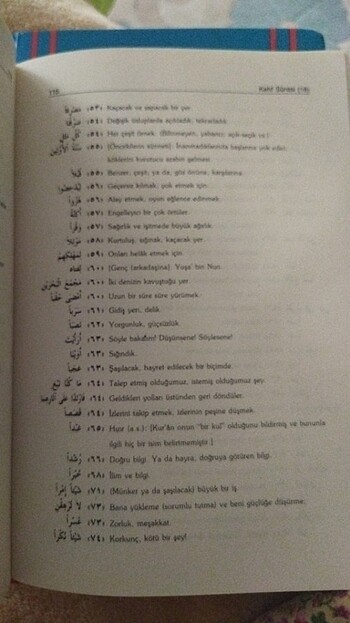 118 Kehf Sûresi (18)
مَصْرِفاً «٥٣» Kaçacak ve sapacak bir yer.
صَرَّفْنَا «٥٤» Değişik üsluplarla açıkladık,
«٥٤» Her çeşit örnek.
سُنَّةُ الْأَوَّلِينَ «٥٥» (Öncekilerin sünneti):
قُبُلاً «٥٥» Benzer, çeşit; ya da, göz önüne, karşılarına.
لِيُدْحِضُوا «٥٦» Geçersiz kılmak, yok etmek için.
هُزُواً «٥٦» Alay etmek, oyun eğlence edinmek.
أَكِنَّةً «٥٧» Engelleyici bir çok örtüler.
وَقْراً «٥٧» Sağırlık ve işitmede büyük ağırlık.
مَوْئِلاً «٥٨» Kurtuluş, sığınak, kaçacak yer.
لِمَهْلِكِهِمْ «٥٩» Onları helâk etmek için.
لِفَتَاهُ «٦٠» [Genç (arkadaşına): Yuşa' bin Nun.
مَجْمَعَ الْبَحْرَيْنِ «٦٠» İki denizin kavuştuğu yer.
أَمْضِيَ حُقُباً «٦٠» Uzun bir süre süre yürümek.
سَرَباً «٦١» Gidiş yeri, delik.
نَصَباً «٦٢» Yorgunluk, güçsüzlük.
أَرَأَيْتَ «٦٣» Söyle bakalım! Düşünsene! Söylesene!
أَوَيْنَا «٦٣» Sığındık.
عَجَباً «٦٣» Şaşılacak, hayret edilecek bir biçimde.
مَا كُنَّا نَبْغِ «٦٤» Talep etmiş olduğumuz, istemiş olduğumuz şey.
فَارْتَدَّا عَلَى آثَارِهِمَا «٦٤» Geldikleri yolları üstünden geri döndüler.
قَصَصاً «٦٤» İzlerini takip etmek, izlerinin peşine düşmek.
عَبْداً «٦٥» Hızır (a.s.): [Kur'ân onun "bir kul" olduğunu bildirmiş ve bununla
ilgili hiç bir isim belirtmemiştir.]
رُشْداً «٦٦» Doğru bilgi. Ya da hayra, doğruya götüren bilgi.
خُبْراً «٦٨» İlim ve bilgi.
شَيْئاً إِمْراً «٧١» (Münker ya da şaşılacak) büyük bir iş.
لَا تُرْهِقْنِي «٧٣» Bana yükleme (sorumlu tutma) ve beni güçlüğe düşürme;
عُسْراً «٧٣» Zorluk, meşakkat.
شَيْئاً نُكْراً «٧٤» Korkunç, kötü bir şey!